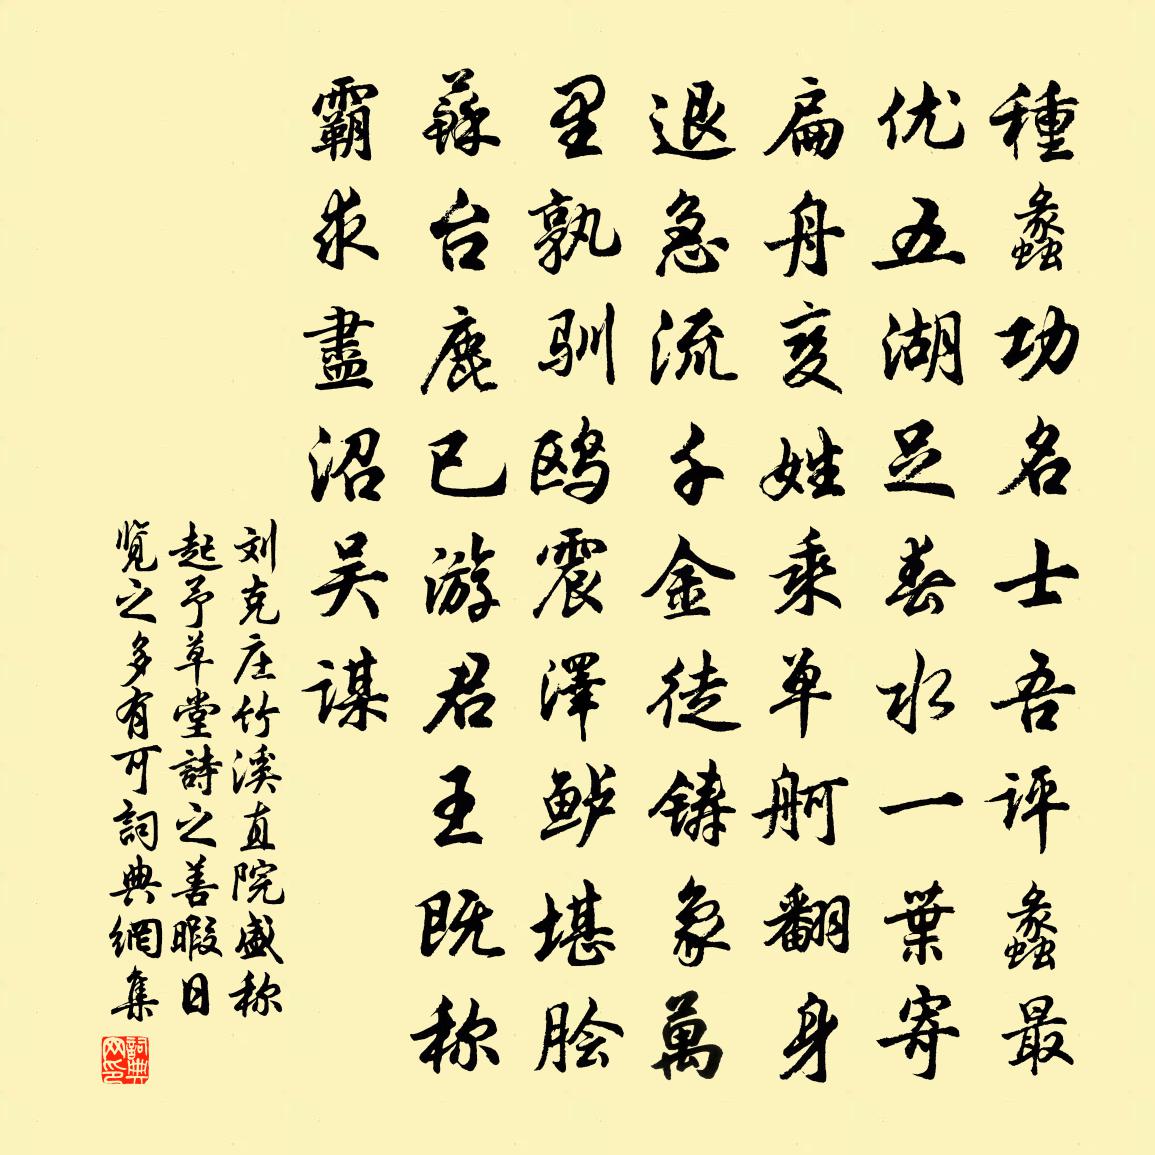 種蠡功名士吾評蠡最
优五湖足春水一葉寄
扁舟变姓乘单舸翻身
退急流千金徒铸象萬
里孰驯鸥震澤鲈堪脍
蘇台鹿已游君王既称
霸求盡沼吴谋
刘克庄竹溪直院盛称
起予草堂詩之善暇日
览之多有可詞典網集
詞典网印